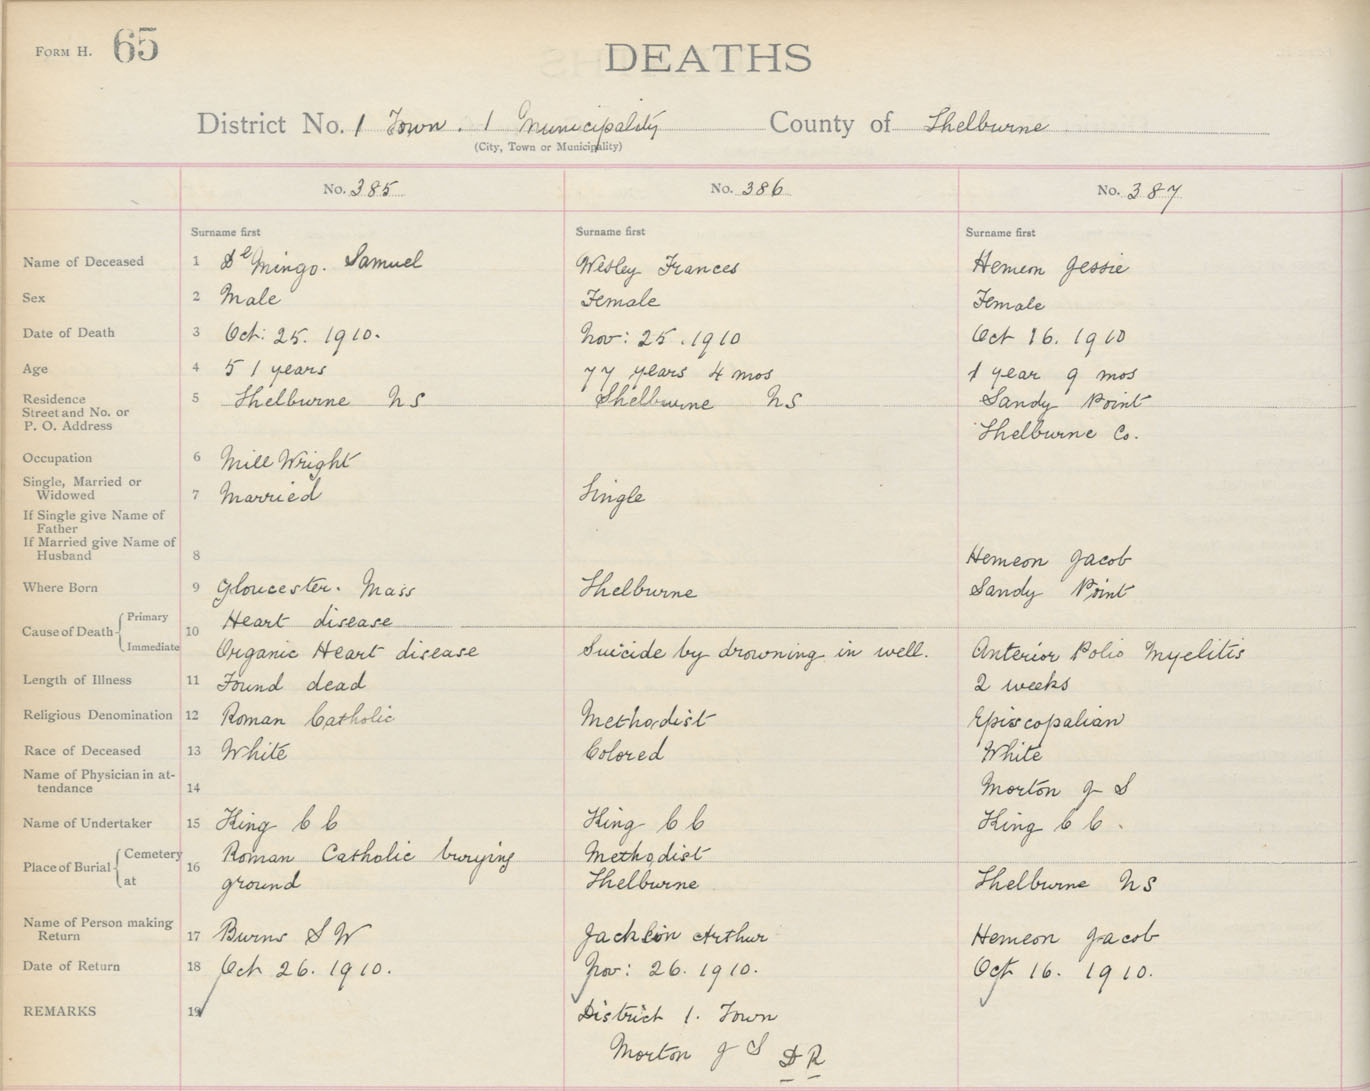 FORM H. 65
DEATHS
District No. 1 Town. 1 Municipality County of Shelburne
(City, Town or Municipality)
No. 385 No. 386 No. 387
Surname first Surname first Surname first
Name of Deceased 1 DeMingo. Samuel Wesley Frances Hemeon Jessie
Sex 2 Male Female Female
Date of Death 3 Oct: 25. 1910. Nov: 25. 1910 Oct 16. 1910
Age 4 51 years 77 years 4 mos 1 year 9 mos
Residence 5 Shelburne NS Shelburne NS Sandy Point
Street and No. or
P. O. Address Shelburne Co.
Occupation 6 Mill Wright
Single, Married or
Widowed 7 Married Single
If Single give Name of
Father
If Married give Name of
Husband 8 Hemeon Jacob
Where Born 9 Gloucester. Mass Shelburne Sandy Point
Cause of Death Primary 10 Heart disease
Immediate Organic Heart disease Suicide by drowning in well. Anterior Polio Myelitis
Length of Illness 11 Found dead 2 weeks
Religious Denomination 12 Roman Catholic Methodist Episcopalian
Race of Deceased 13 White Colored White
Name of Physician in at-
tendance 14 Morton J S
Name of Undertaker 15 King C C King C C King C C.
Place of Burial Cemetery 16 Roman Catholic burying Methodist
at ground Shelburne Shelburne NS
Name of Person making
Return 17 Burns S W Jackson Arthur Hemeon Jacob
Date of Return 18 Oct 26. 1910. Nov: 26. 1910. Oct 16. 1910.
REMARKS 19 District 1. Town
Morton J S D R